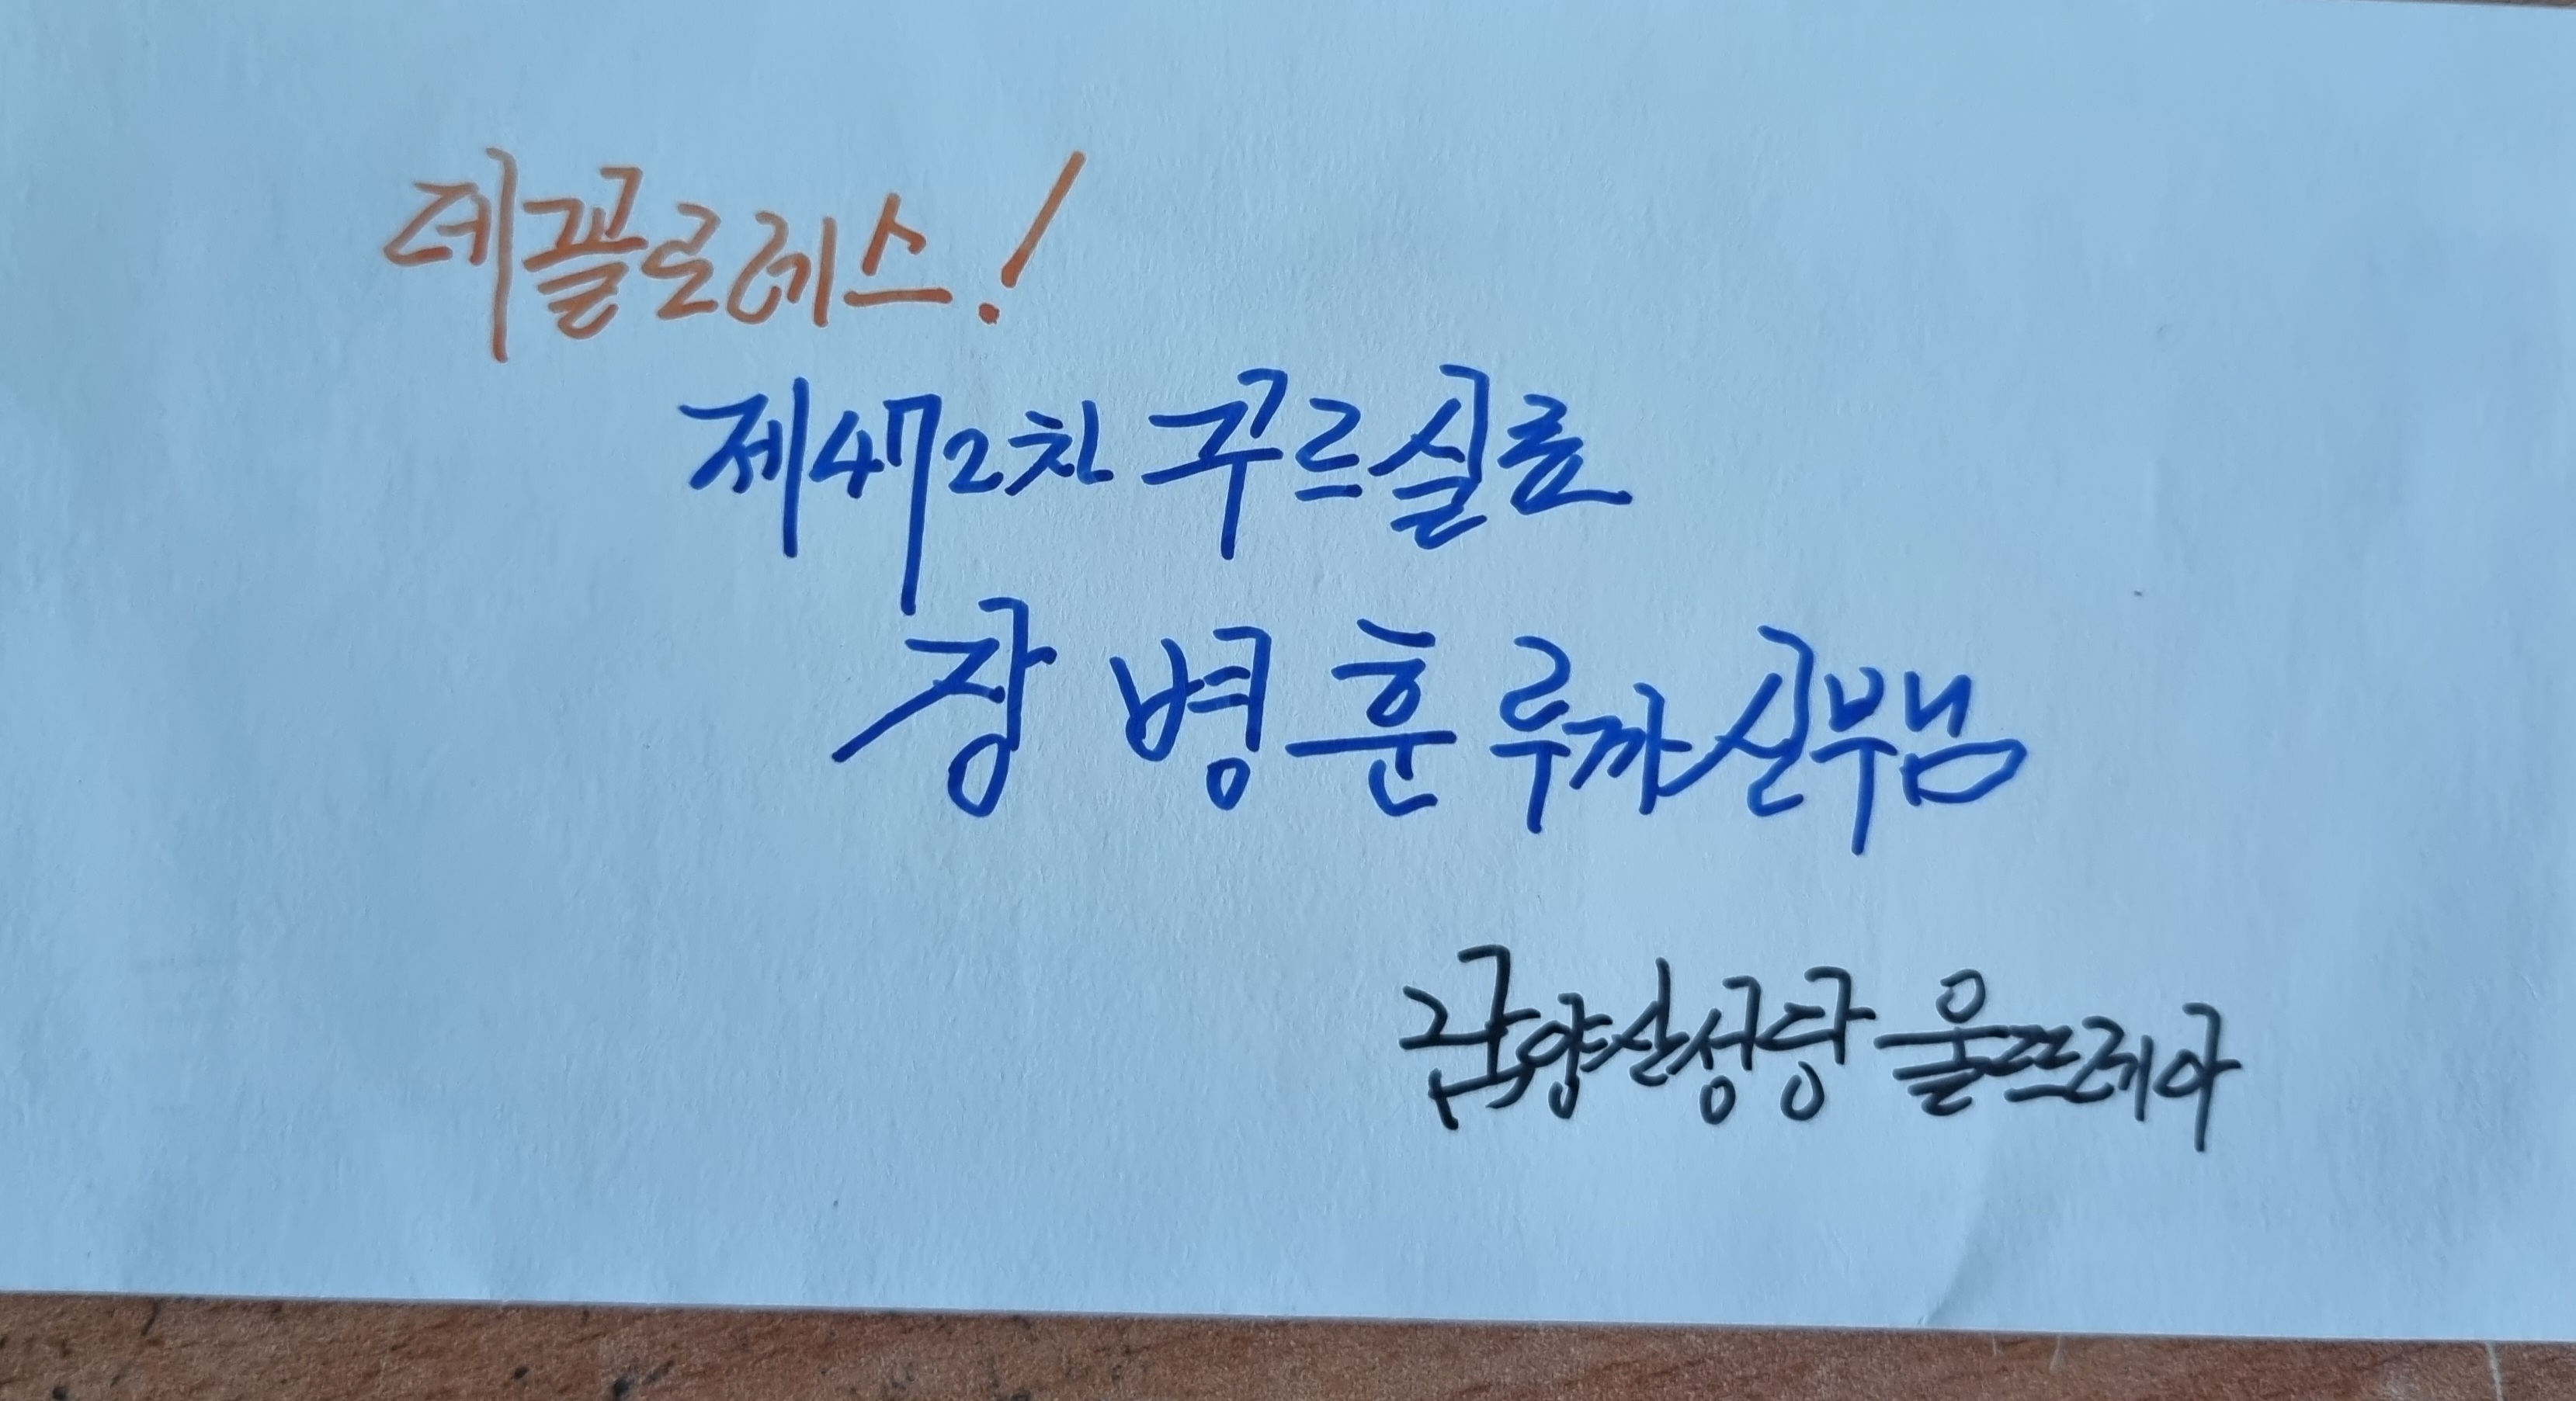 데꼴로레스!
제472차 꾸르실료
장병훈 루까 신부님
금양산성당 울뜨레아